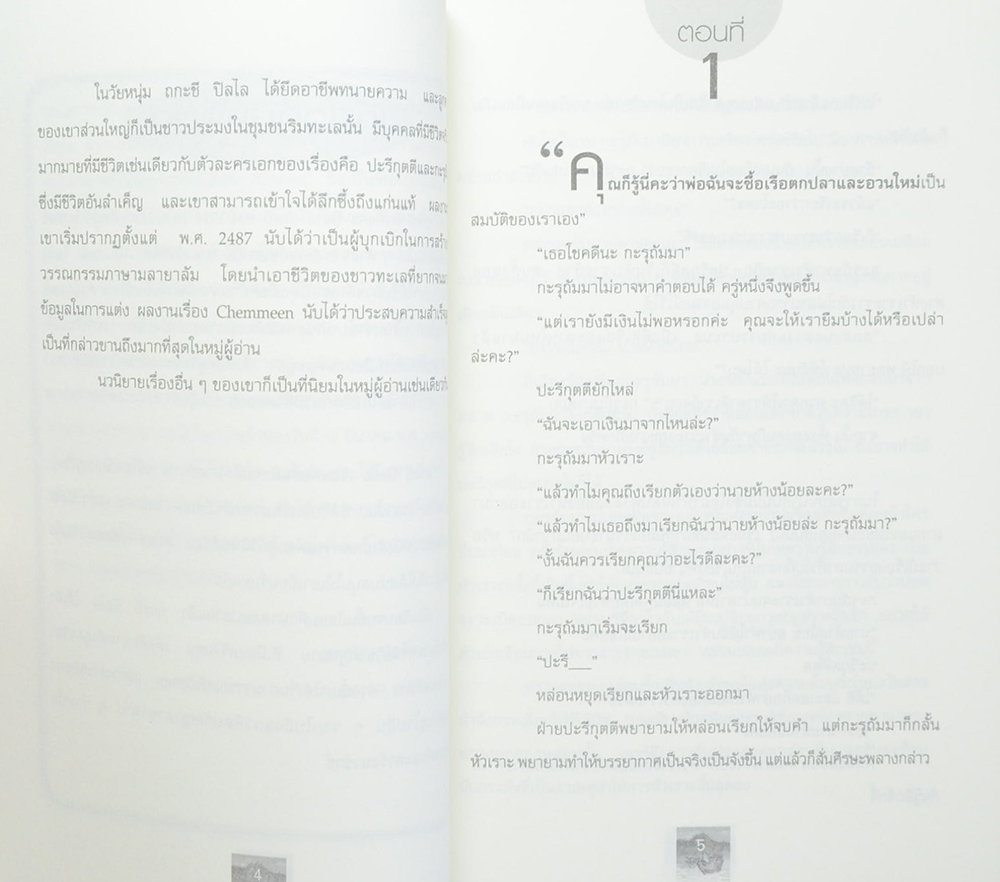 ในวัยหนุ่ม ถกะชี ปิลไล ได้ยึดอาชีพทนายความ
ของเขาส่วนใหญ่ก็เป็นชาวประมงในชุมชนริมทะเลนั้น มีบุคคลที่มีชีวิต
มากมายที่มีชีวิตเช่นเดียวกับตัวละครเอกของเรื่องคือ ปะรีกุตตีและกะรุ
ซึ่งมีชีวิตอันลำเค็ญ และเขาสามารถเข้าใจได้ลึกซึ้งถึงแก่นแท้
เขาเริ่มปรากฏตั้งแต่ พ.ศ. 2487 นับได้ว่าเป็นผู้บุกเบิกในการ
วรรณกรรมภาษามาลายาลัม โดยนำเอาชีวิตของชาวทะเลที่ยากจน
ข้อมูลในการแต่ง ผลงานเรื่อง Chemmeen นับได้ว่าประสบความสำเร็จ
เป็นที่กล่าวขานถึงมากที่สุดในหมู่ผู้อ่าน
นวนิยายเรื่องอื่น ๆ ของเขาก็เป็นที่นิยมในหมู่ผู้อ่านเช่นเดียว
4
ตอนที่
1
“คุณก็รู้นี่คะว่าพ่อฉันจะซื้อเรือตกปลาและอวนใหม่เป็น
สมบัติของเราเอง”
“เธอโชคดีนะ กะรุถัมมา”
กะรุถัมมาไม่อาจหาคำตอบได้ ครู่หนึ่งจึงพูดขึ้น
“แต่เรายังมีเงินไม่พอหรอกค่ะ คุณจะให้เรายืมบ้างได้หรือเปล่า
ล่ะคะ?”
ปะรีกุตตียักไหล่
“ฉันจะเอาเงินมาจากไหนล่ะ?”
กะรุถัมมาหัวเราะ
“แล้วทำไมคุณถึงเรียกตัวเองว่านายห้างน้อยละคะ?”
“แล้วทำไมเธอถึงมาเรียกฉันว่านายห้างน้อยล่ะ กะรุถัมมา?”
“งั้นฉันควรเรียกคุณว่าอะไรดีละคะ?”
“ก็เรียกฉันว่าปะรีกุตตีนี่แหละ”
กะรุถัมมาเริ่มจะเรียก
“ปะรี___”
หล่อนหยุดเรียกและหัวเราะออกมา
ฝ่ายปะรีกุตตีพยายามให้หล่อนเรียกให้จบคำ แต่กะรุถัมมาก็กลั้น
หัวเราะ พยายามทำให้บรรยากาศเป็นจริงเป็นจังขึ้น แต่แล้วก็สั่นศีรษะพลางกล่าว
5